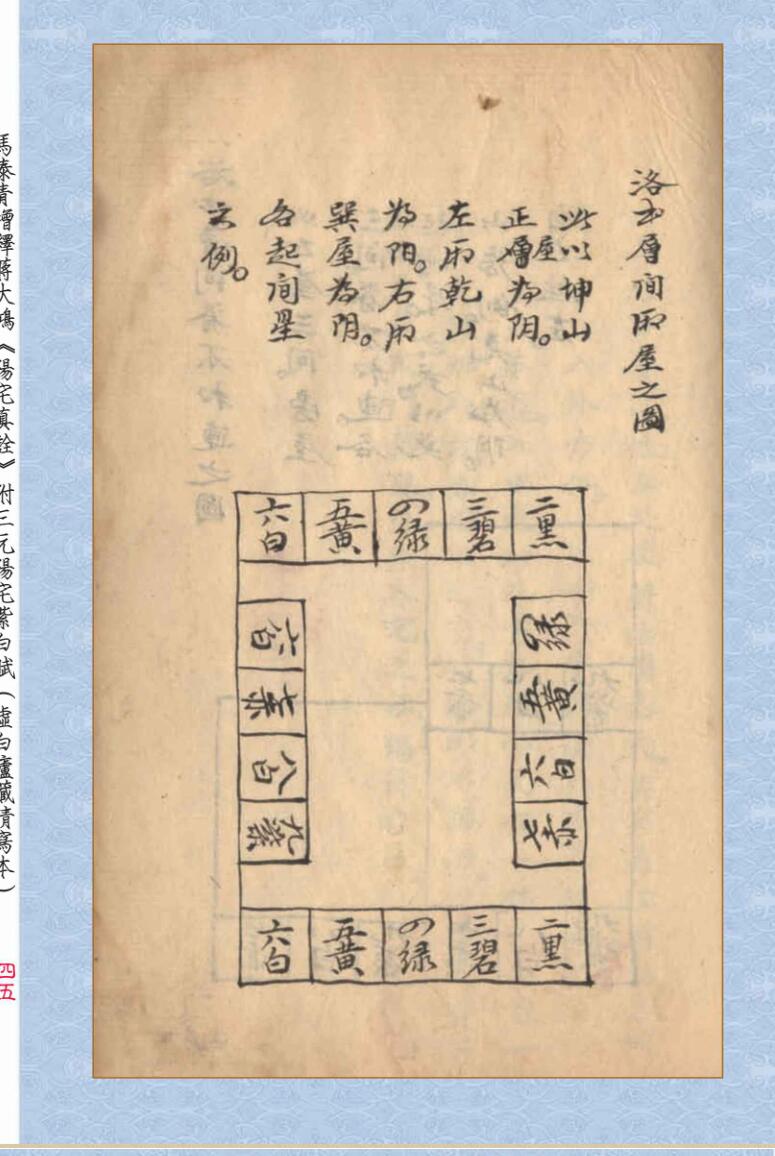 洛书層间厢屋之圖
此以坤山
正層屋为阴。
左厢乾山
为阳。右厢
巽屋为阴。
各起间星
之例。
二黑 三碧 四绿 五黄 六白
四绿 五黄 六白 七赤
六白 七赤 八白 九紫
二黑 三碧 四绿 五黄 六白
馬泰青增釋蔣大鴻《陽宅真詮》附三元陽宅紫白賦（虛白廬藏清寫本）
四五